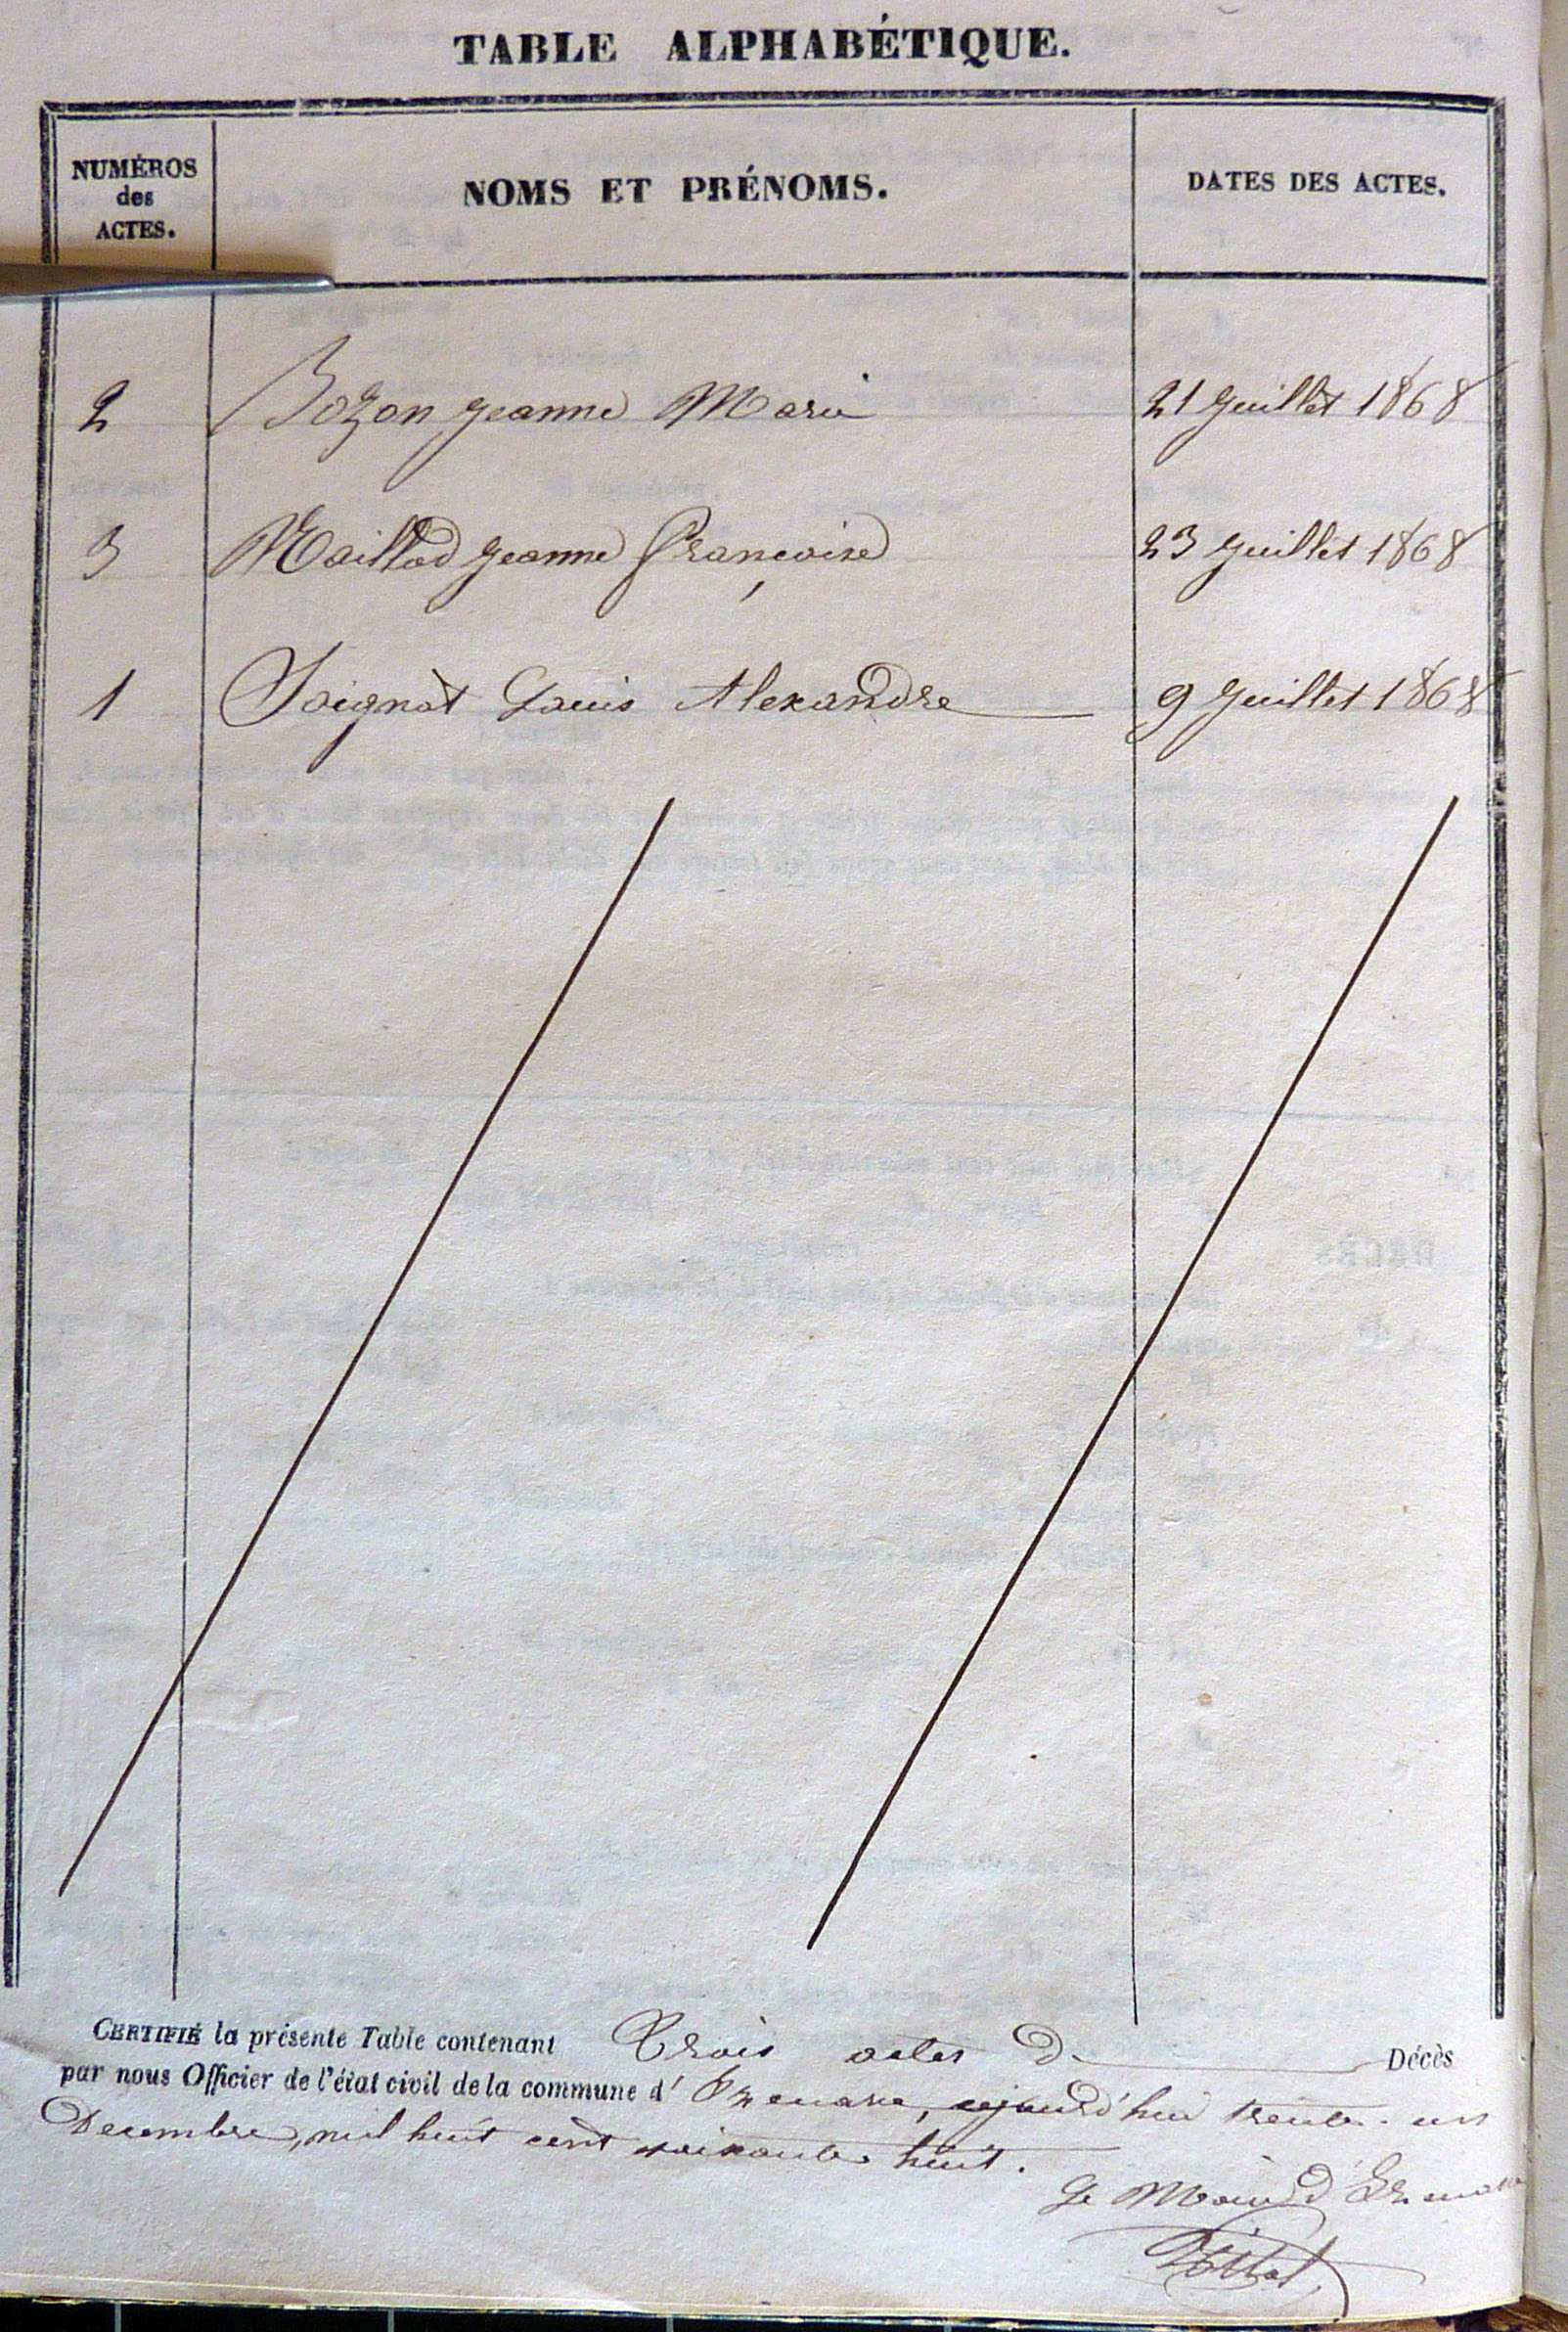 TABLE ALPHABÉTIQUE.
NUMÉROS
des
ACTES.
NOMS ET PRÉNOMS.
DATES DES ACTES.
2 Bozon Jeanne Marie 21 Juillet 1868
3 Maillod Jeanne Françoise 23 Juillet 1868
1 Soignat Louis Alexandre 9 Juillet 1868
CERTIFIÉ la présente Table contenant Trois actes de Décès
par nous Officier de l'état civil de la commune d' aujourd'hui trente-un
Décembre, mil huit cent soixante huit.
Le Maire d'